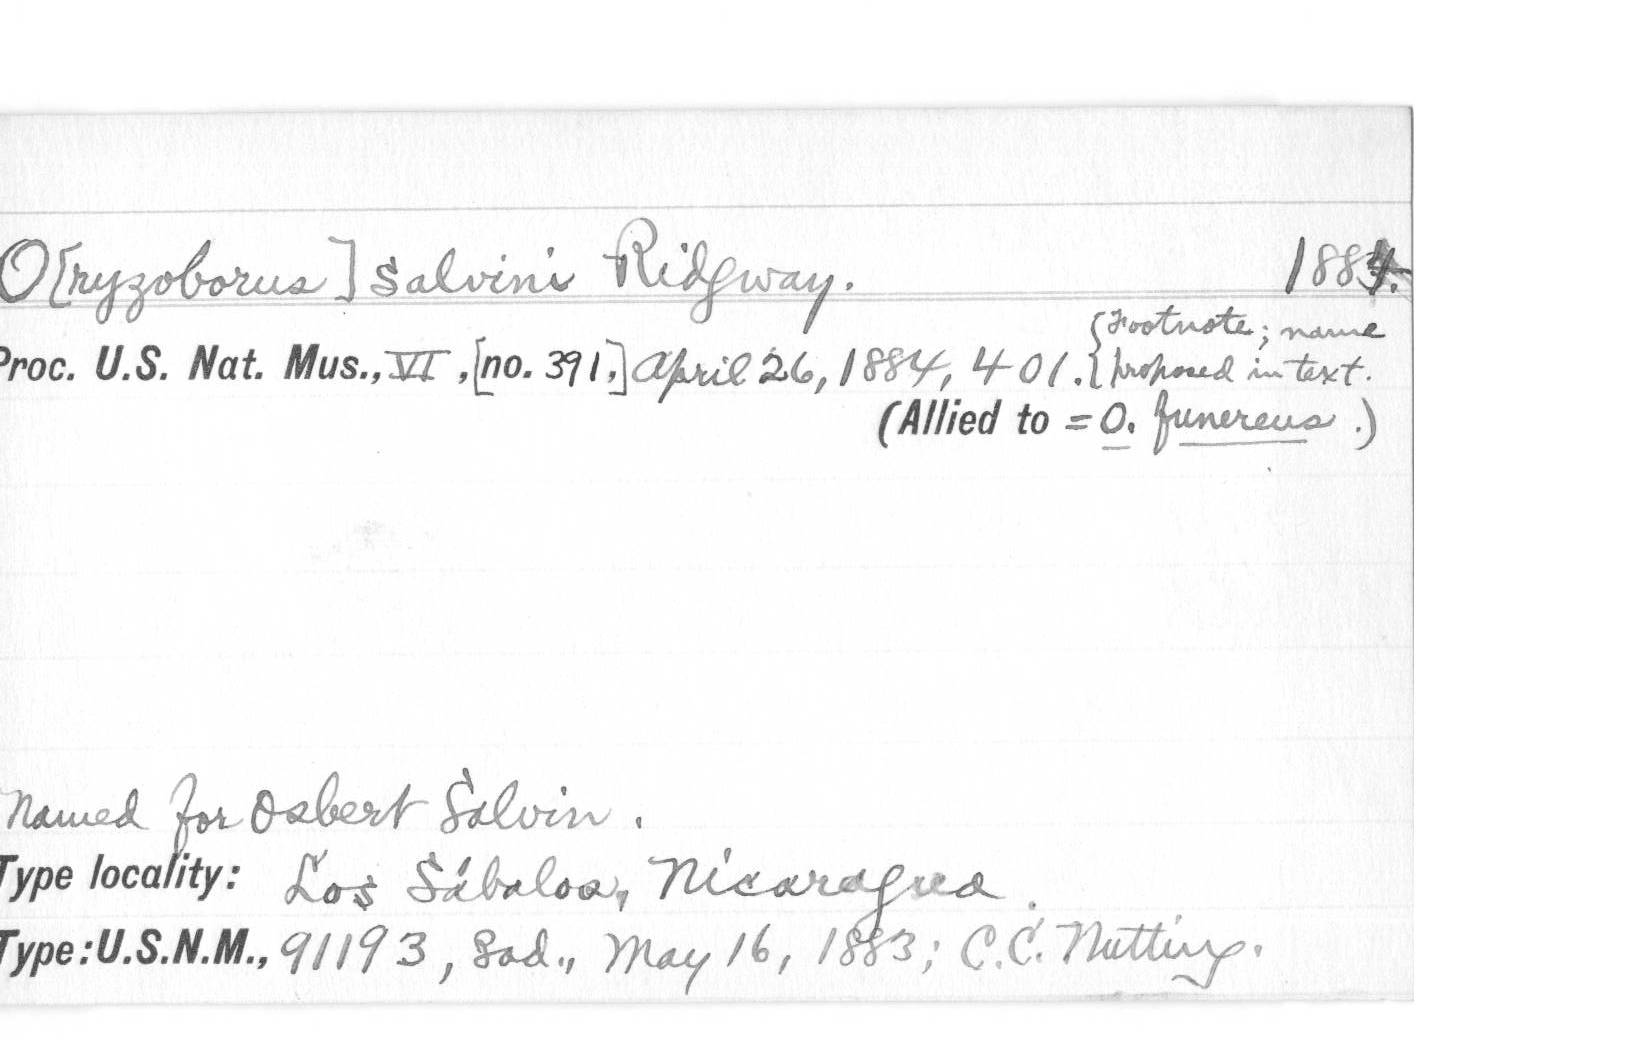 O[ryzoborus] salvini Ridgway. 1884.
{Footnote; name
Proc. U.S. Nat. Mus., VI, [no. 391,] April 26, 1884, 401. {proposed in text.
(Allied to = O. funereus.)
Named for Osbert Salvin.
Type locality: Los Sábalos, Nicaragua.
Type: U.S.N.M., 91193, ad., May 16, 1883; C.C. Nutting.